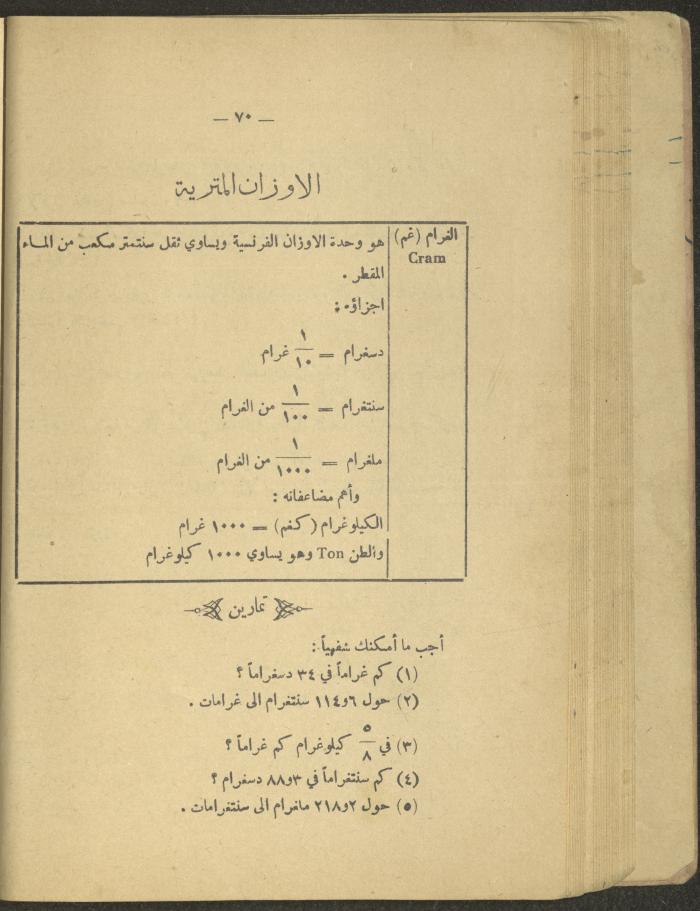 — ٧٠ —
الاوزان المترية
الغرام (غم)
Cram
هو وحدة الاوزان الفرنسية ويساوي ثقل سنتمتر مكعب من الماء
المقطر .
اجزاؤه :
دسغرام = ١/١٠ غرام
سنتغرام = ١/١٠٠ من الغرام
ملغرام = ١/١٠٠٠ من الغرام
وأهم مضاعفاته :
الكيلوغرام (كغم) = ١٠٠٠ غرام
والطن Ton وهو يساوي ١٠٠٠ كيلوغرام
تمارين
أجب ما أمكنك شفهياً :
(١) كم غراماً في ٣٤ دسغراماً ؟
(٢) حول ٦و١١٤ سنتغرام الى غرامات .
(٣) في ٥/٨ كيلوغرام كم غراماً ؟
(٤) كم سنتغراماً في ٣و٨٨ دسغرام ؟
(٥) حول ٢و٢١٨ ملغرام الى سنتغرامات .